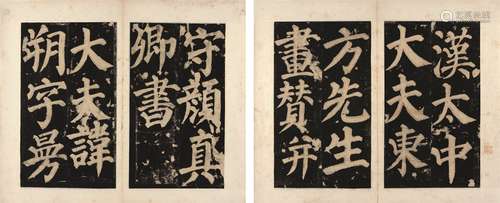 漢太中
大夫東
方先生
畫賛并
守顏真
卿書
大夫諱
朔字曼